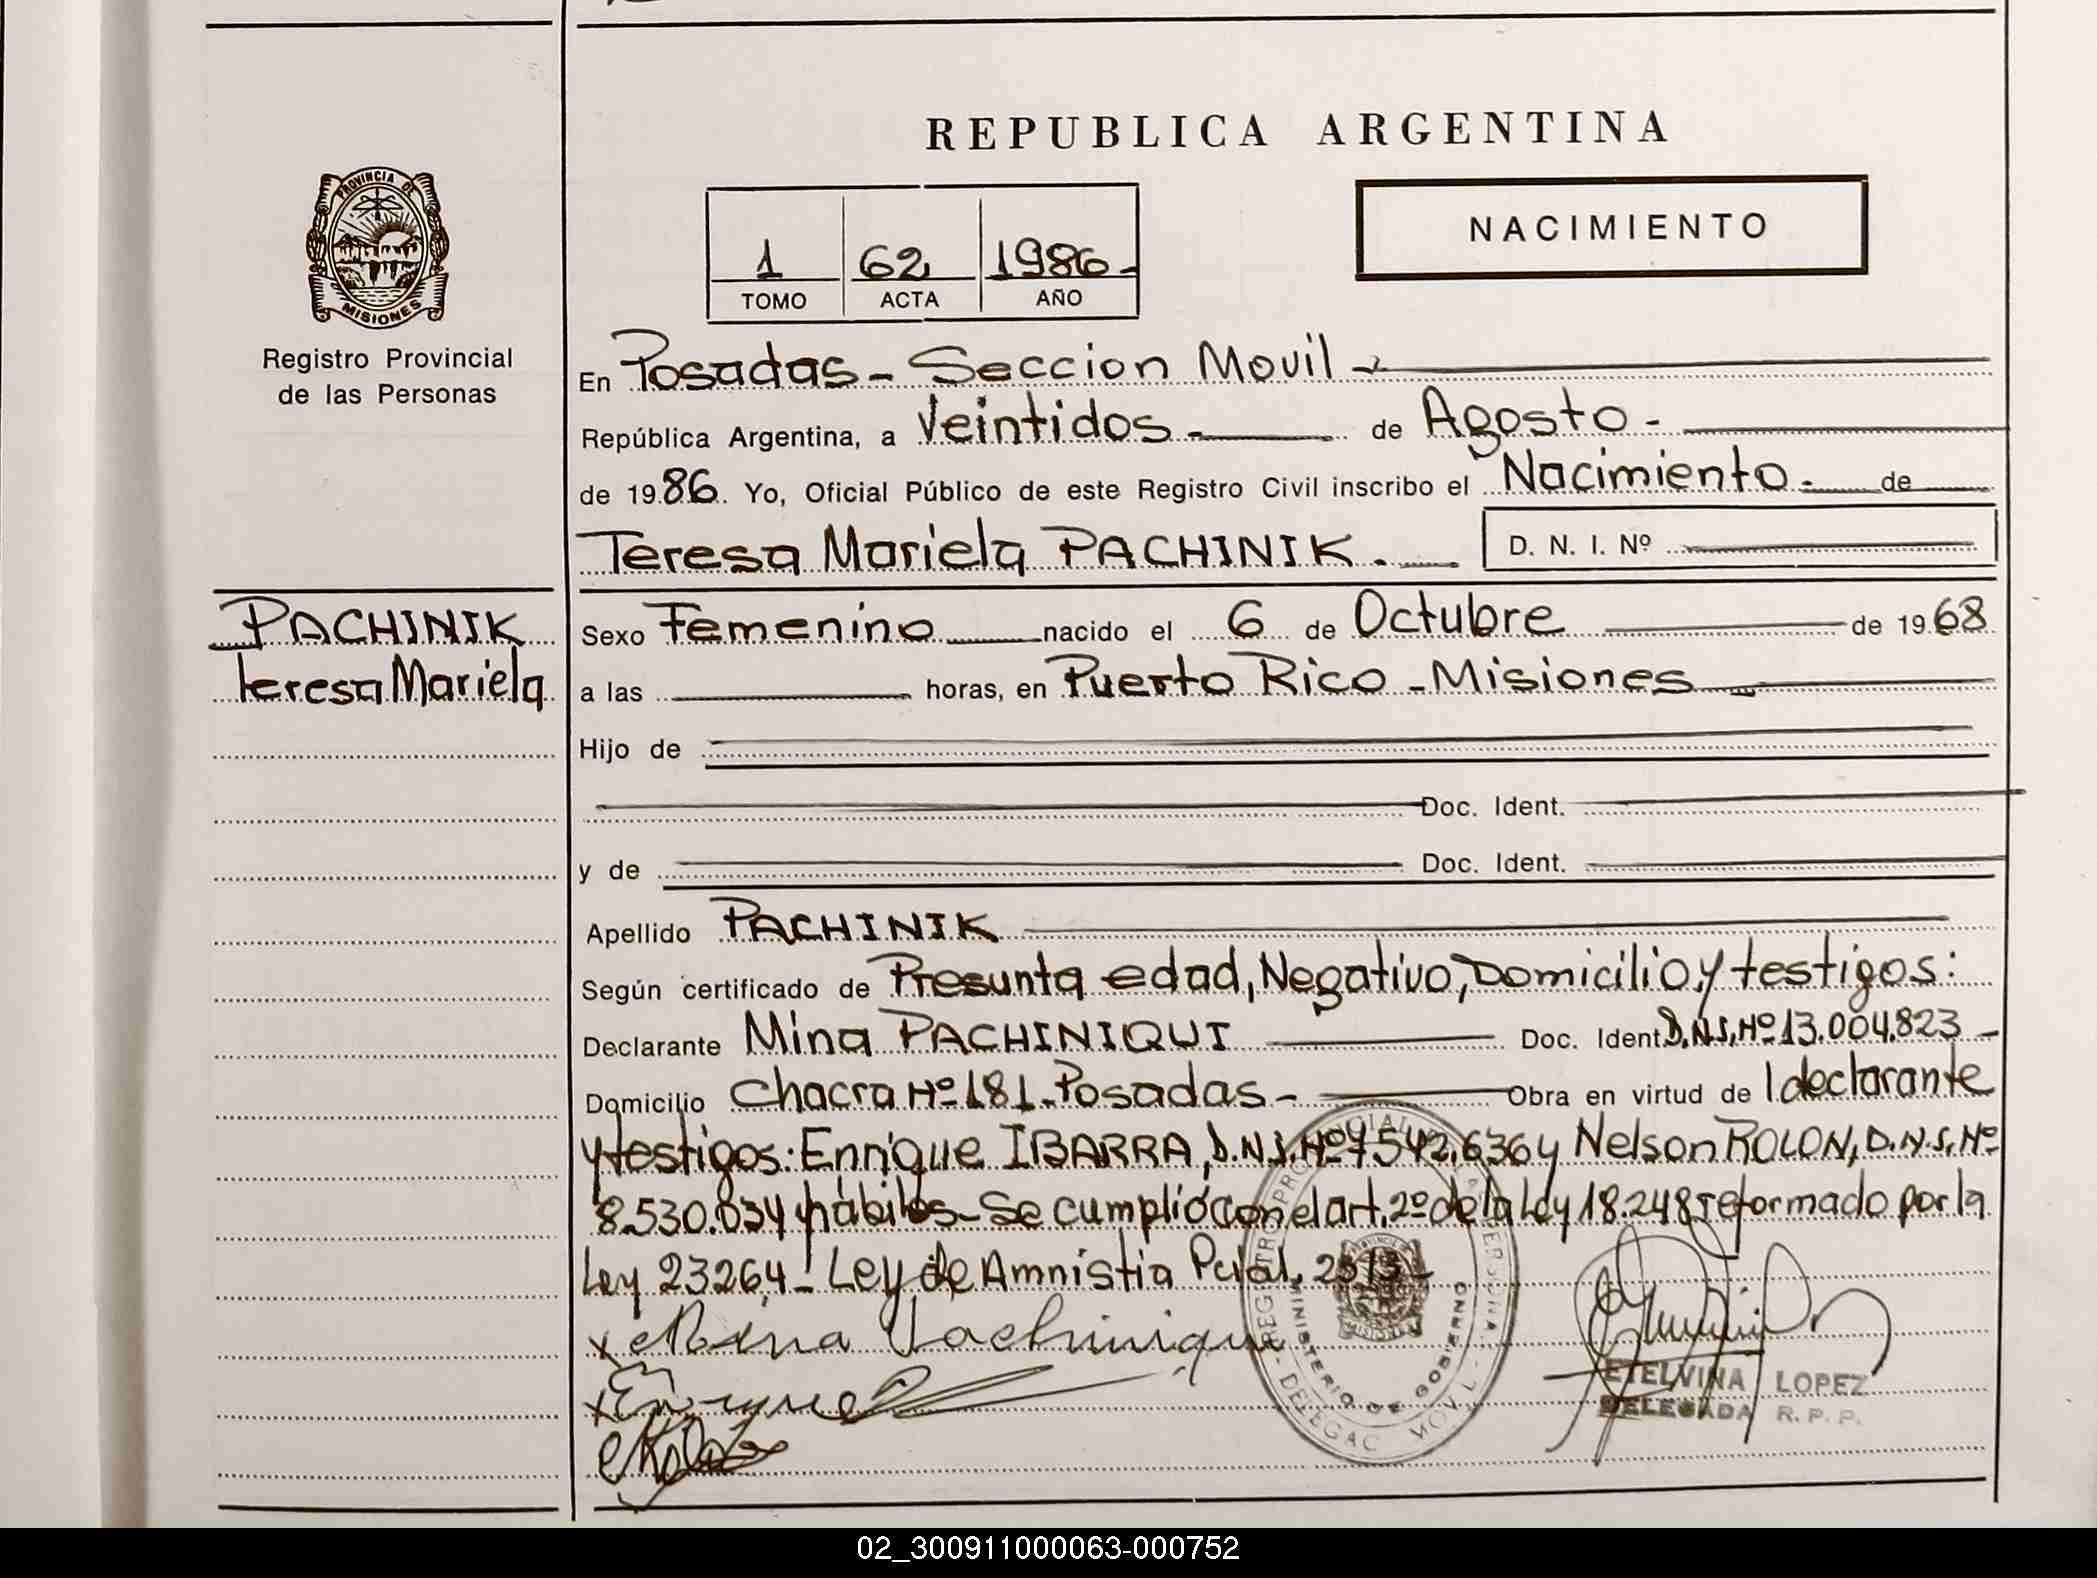 REPUBLICA ARGENTINA
NACIMIENTO
1 62 1986-
TOMO ACTA AÑO
PROVINCIA DE
MISIONES
Registro Provincial
de las Personas
En Posadas - Seccion Movil -
República Argentina, a Veintidos - de Agosto -
de 1986. Yo, Oficial Público de este Registro Civil inscribo el Nacimiento - de
Teresa Mariela PACHINIK. D. N. I. Nº
PACHINIK
Teresa Mariela
Sexo Femenino nacido el 6 de Octubre de 1968
a las horas, en Puerto Rico - Misiones
Hijo de
Doc. Ident.
y de Doc. Ident.
Apellido PACHINIK
Según certificado de Presunta edad, Negativo, Domicilio y testigos:
Declarante Mina PACHINIQUI Doc. Ident. D.N.I. Nº 13.004.823 -
Domicilio Chacra Nº 181 - Posadas - Obra en virtud de l declarante
y testigos: Enrique IBARRA, D.N.I. Nº 7.542.636 y Nelson ROLON, D.N.I. Nº
8.530.034 hábiles - Se cumplió con el art. 2º de la Ley 18.248 reformado por la
Ley 23264 - Ley de Amnistia Pcial.
x Mina Pachiniqui
x Enrique
Rolon
MINISTERIO DE GOBIERNO
ETELVINA LOPEZ
DELEGADA R. P. P.
02_300911000063-000752